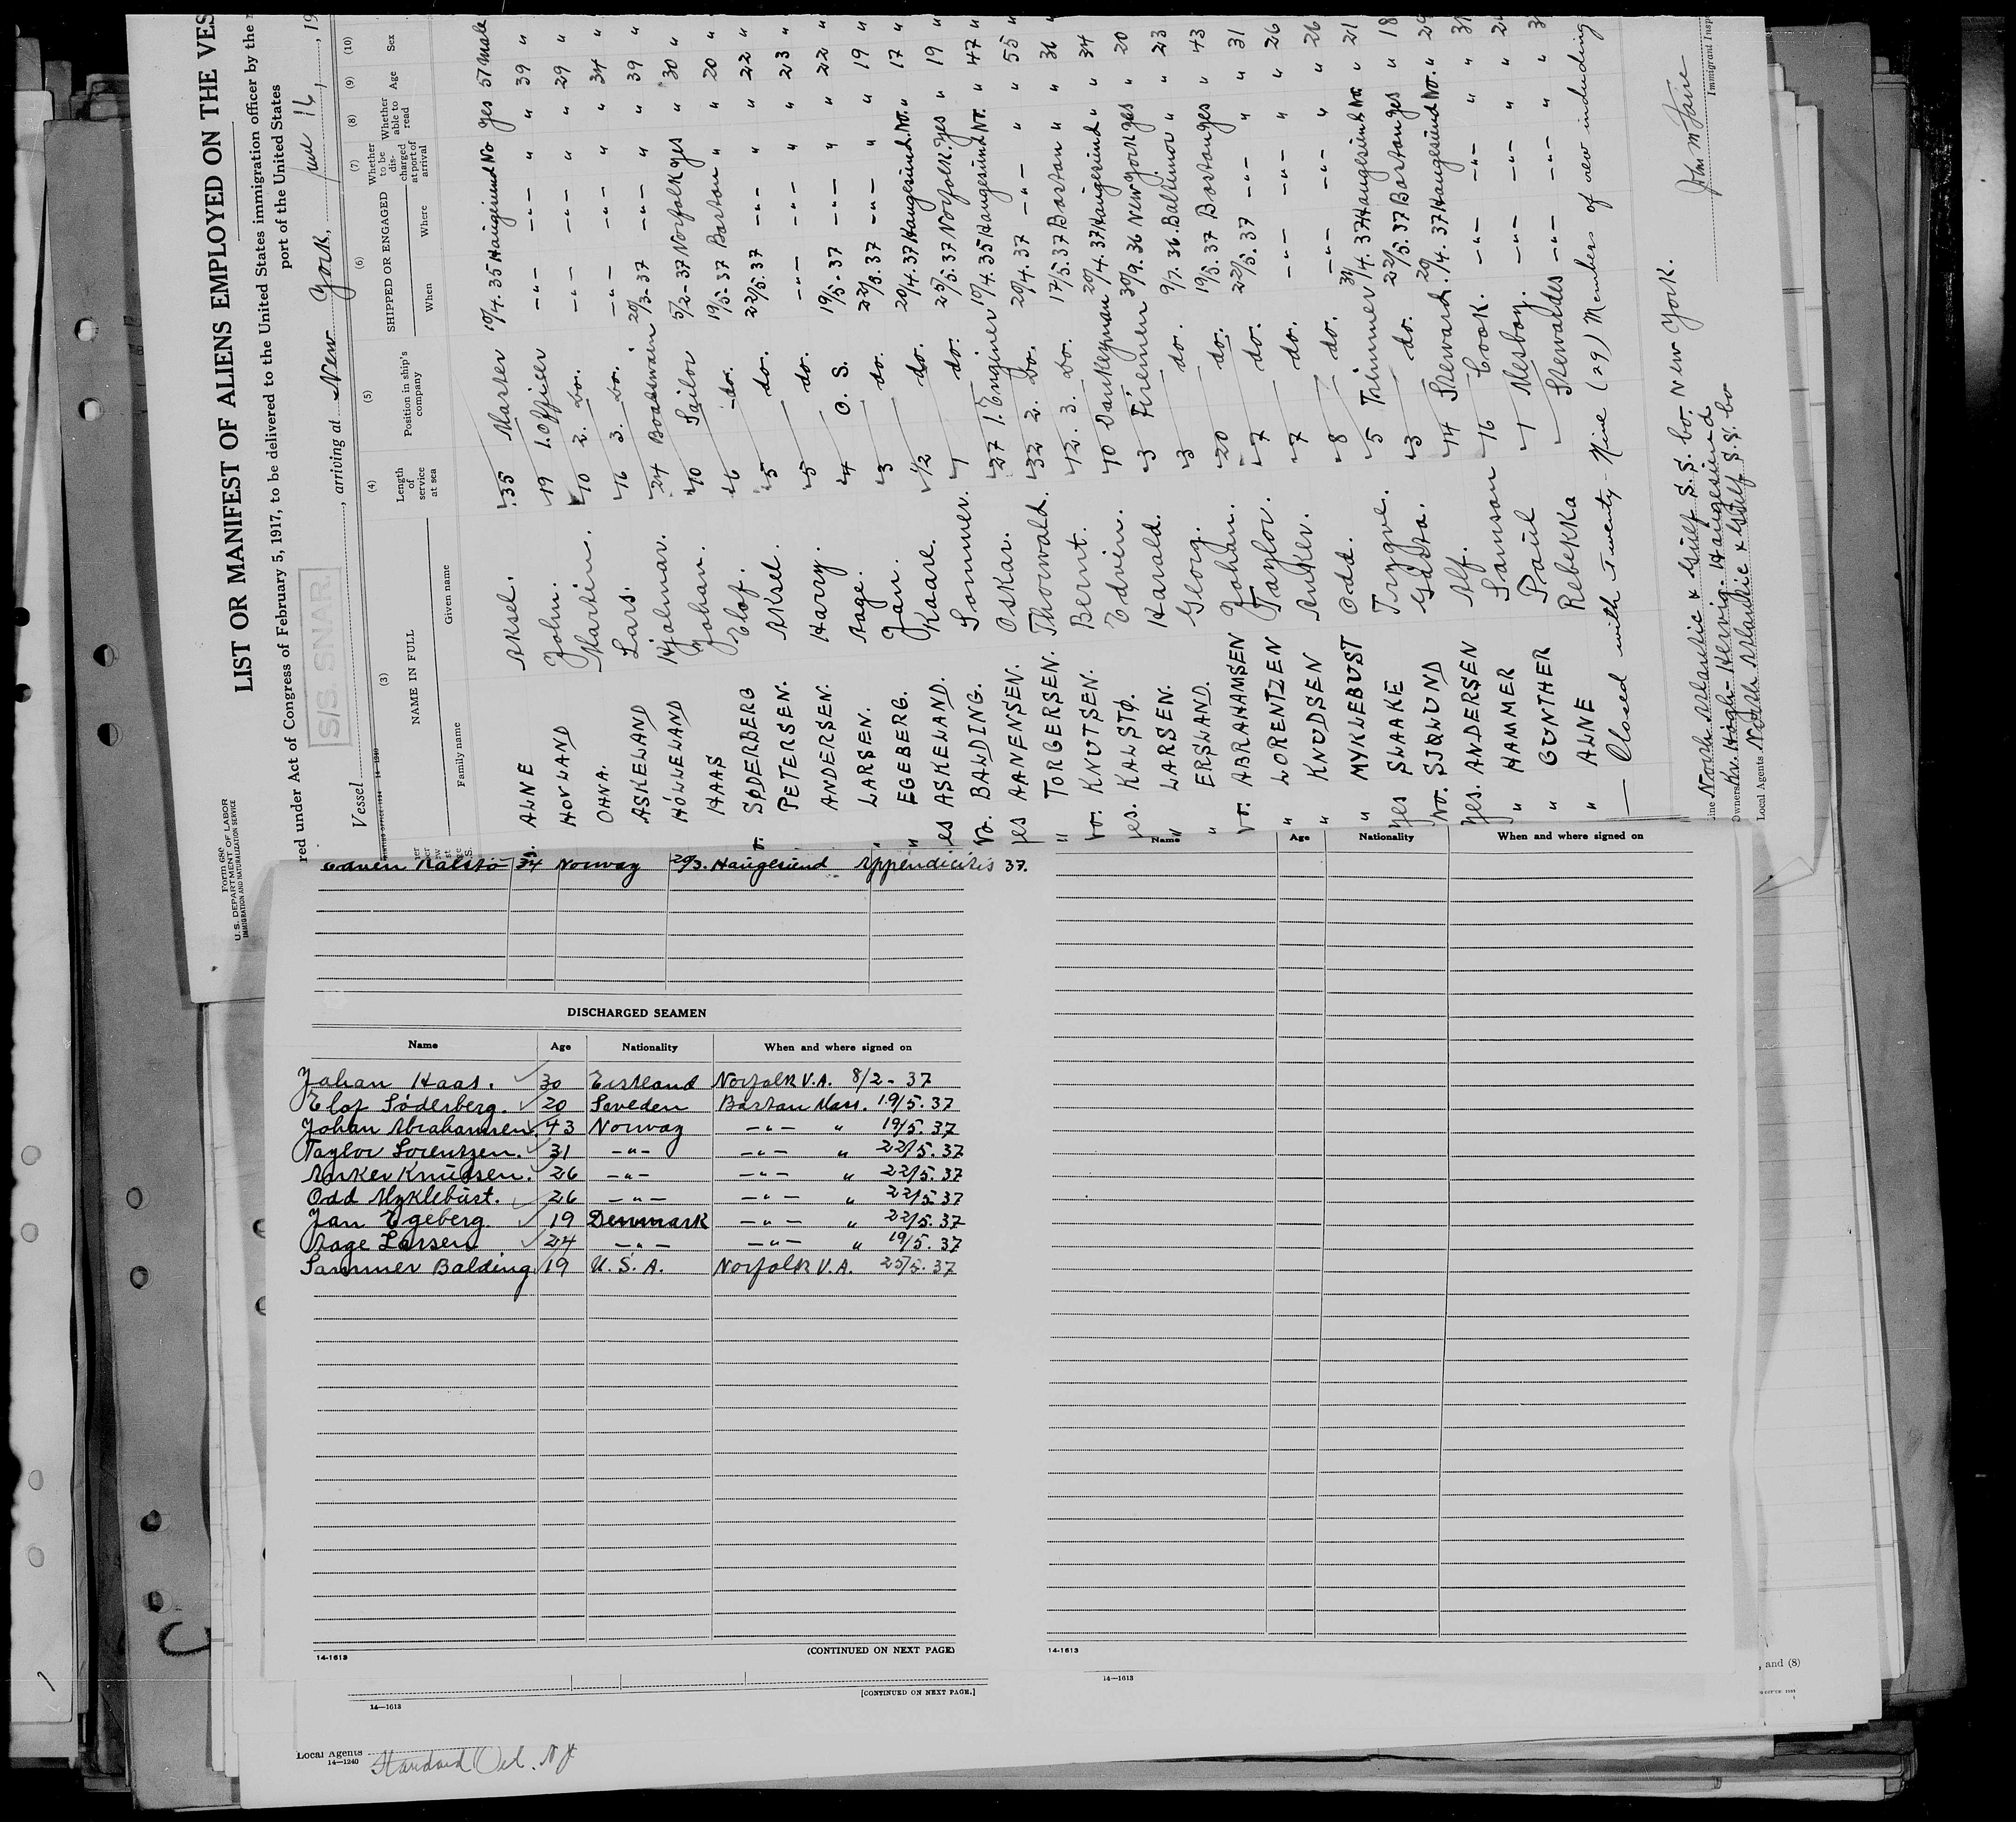 LIST OR MANIFEST OF ALIENS EMPLOYED ON THE VES
red under Act of Congress of February 5, 1917, to be delivered to the United States immigration officer by the
port of the United States
S/S. SNAR.
Vessel , arriving at New York, 16, 19
Form 680
U. S. DEPARTMENT OF LABOR
IMMIGRATION AND NATURALIZATION SERVICE
(3) (4) (5) (6) (7) (8) (9) (10)
NAME IN FULL Length of service at sea Position in ship's company SHIPPED OR ENGAGED Whether to be discharged at port of arrival Whether able to read Age Sex
Family name Given name When Where
ALNE Aksel. 35 Master 10/4. 35 Haugesund No yes 57 male
HOVLAND John. 19 1. Officer -"- -"- " " 39 "
OHNA. Martin. 10 2. Do. -"- -"- " " 29 "
ASKELAND Lars. 16 3. Do. -"- -"- " " 34 "
HÖLLELAND Hjalmar. 24 Boatswain 20/3-37 -"- " " 39 "
HAAS Johan. 10 Sailor 5/2-37 Norfolk yes " 30 "
SØDERBERG Elof. 6 do. 19/5-37 Boston " " 20 "
PETERSEN. Aksel. 5 do. 22/5.37 -"- " " 22 "
ANDERSEN. Harry. 5 do. -"- -"- " " 23 "
LARSEN. Aage. 4 O. S. 19/5-37 -"- " " 22 "
EGEBERG. Jan. 3 do. 22/5.37 -"- " " 19 "
yes ASKELAND. Kaare. 1/2 do. 20/4.37 Haugesund. No. " 17 "
No. BALDING. Sommer. 1 do. 25/5.37 Norfolk. yes " 19 "
yes AANENSEN. Oskar. 27 1. Enginer 10/4.35 Haugesund No. " 47 "
" TORGERSEN. Thorwald. 32 2. Do. 20/4.37 -"- " " 55 "
No. KNUTSEN. Bernt. 12. 3. Do. 17/5.37 Boston " " 36 "
yes. KALSTØ. Edvin. 10 Dankeyman 20/4.37 Haugesund " " 34
" LARSEN. Harald. 3 Firemen 30/9.36 New York yes " 20
" ERSLAND. Georg. 3 do. 9/7.36. Baltimor " " 23
No. ABRAHAMSEN Johan. 20 do. 19/5.37 Boston yes " 43
" LORENTZEN Taylor. 7 do. 22/5.37 -"- " " 31
" KNUDSEN Anker. 7 do. -"- -"- " " 26
" MYKLEBUST Odd. 8 do. -"- -"- " " 26
yes SLAAKE Trygve. 5 Trimmer /4.37 Haugesund No. " 21
No. SJQLUND Gösta. 3 do. 22/5.37 Boston yes " 18
yes. ANDERSEN Alf. 14 Steward. 20/4.37 Haugesund No. "
" HAMMER Samson 16 Cook. -"- -"- " "
" GUNTHER Paul 1 Mesboy. -"- -"- " "
" ALNE Rebekka Stewardes -"- -"- " "
Closed with Twenty-Nine (29) Members of crew including
Line North Atlantic & Gulf S.S. Co. New York.
Owners Kn. Høgh-Hervig. Haugesund
Local Agents North Atlantic & Gulf S.S. Co
Immigrant Insp
Edwin Kalstø 34 Norway 20/3. Haugesund Appendicitis 37.
DISCHARGED SEAMEN
Name Age Nationality When and where signed on
Johan Haas. 30 Eistland Norfolk V.A. 8/2-37
Elof Söderberg. 20 Sweden Bostan Mass. 19/5.37
Johan Abrahamsen. 43 Norway -"- " 19/5.37
Taylor Lorentzen. 31 -"- -"- " 22/5.37
Anker Knudsen. 26 -"- -"- " 22/5.37
Odd Myklebust. 26 -"- -"- " 22/5.37
Jan Egeberg. 19 Denmark -"- " 22/5.37
Aage Larsen. 24 -"- -"- " 19/5.37
Sommer Balding 19 U.S.A. Norfolk V.A. 25/5.37
14-1613 (CONTINUED ON NEXT PAGE)
Name Age Nationality When and where signed on
14-1613
14—1613 [CONTINUED ON NEXT PAGE.]
14—1613
, and (8)
Local Agents
14—1240
Standard Oil. N J